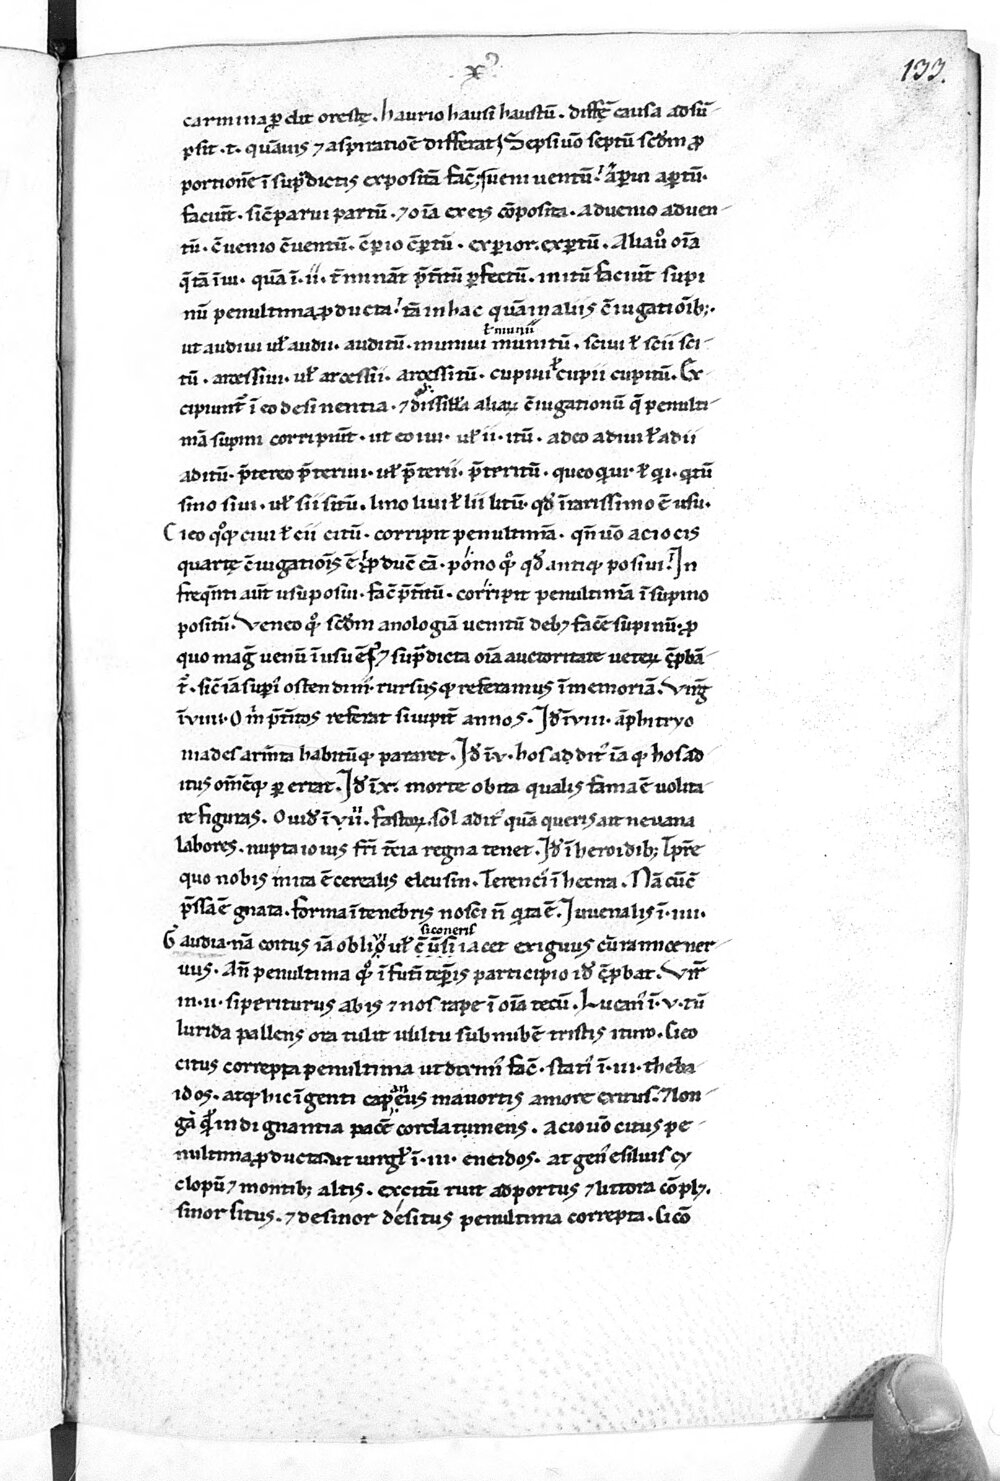 xº
133.
carmina ꝑdit orestę. haurio hausi haustū. diffēr̄ causa adsū
psit .t. quāuis ⁊ aspiratiōe differat. Sepsi ū̊o septū scd̄m ꝓ
portionē ī sup̄dictis expositā fac̄. ueni uentū. aꝑui aꝑtū.
faciūt. sic̄ parui partū. ⁊ oīa ex eis cōposita. aduenio aduen
tū. c̄uenio c̄uentū. c̄ꝑio c̄ꝑtū. exꝑior. exꝑtū. Aliaꝝ oīa
q̄ tā ī ui. quā ī .ii. t̄minānt p̄t̄itū ꝑfectū. in itū faciūt supi
nū penultima ꝓducta. tā in hac quā in aliis c̄iugatiōib;.
ł munii
ut audiui uł audii. auditū. muniui munitū. sciui ł scii sci
tū. arcessiui. uł arcessii. arcessitū. cupiui ł cupii cupitū. Ex
cipiunt̄ ī eo desinentia. ⁊ dissillaba aliaꝝ c̄iugationū q̄ penulti
mā supini corripiūt. ut eo iui. uł ii. itū. adeo adiui ł adii
aditū. p̄tereo p̄teriui. uł p̄terii. p̄teritū. queo qiui ł qii. qitū
sino siui. uł sii sitū. lino liui ł lii litū. qd̄ ī rarissimo ē usu.
Cieo qͦqꝫ ciui ł cii citū. corripit penultimā. qn̄ ū̊o a cio cis
quartę c̄iugatiōis ē ꝓduc̄ eā. pōno qͦꝫ qd̄ antiqi posiui. In
freqn̄ti aūt usu posui. fac̄ p̄t̄itū. corripit penultimā ī supino
positū. Veneo qͦꝫ scd̄m anologiā uenitū deb; fac̄e supinū. ꝓ
quo maḡ uenū ī usu ē. ⁊ sup̄dicta oīa auctoritate ueteꝝ c̄ꝓbā
t̄. sic̄ iā supi̊ ostendim̄. rursusqꝫ referamus ī memoriā. Virḡ
ī .viii. O m̄ p̄t̄itos referat si iupit̄ annos. Id̄ ī .viii. āphitryo
niades arm̄ta habitūqꝫ pararet. Id̄ ī .v. hos aditi̊ iāqꝫ hos ad
itus om̄eqꝫ ꝑerrat. Id̄ ī .x. morte obita qualis fama ē uolita
re figuras. Ouid̄ ī .vii. fastoꝝ. sol aditi̊ quā queris ait ne uana
labores. nupta iouis fr̄i t̄cia regna tenet. Id̄ ī heroidib; Tpr̄e
quo nobis inita ē cerealis eleusin. Terenci̊ ī hecira. Nā cūc̄
p̄ssa ē gnata. forma ī tenebris nosci n̄ qita ē. Iuuenalis ī .iiii.
si coneris
Gaudia. nā coitus iā obliō uł c̄ūsī iacet exiguus cū ramice ner
uus. An̄ penultima qͦꝫ ī futī tēꝑis participio id̄ c̄ꝓbat. Virḡ
in .ii. si periturus abis ⁊ nos rape ī oīa tecū. Lucani̊ ī .v. tū
lurida pallens ora tulit uultu sub nubē tristis ituro. Cieo
citus correpta penultima ut diximi̊ fac̄. stati̊ ī .iii. theba
idos. atqꝫ hic ingenti capaneus mauortis amore excitus. ⁊ lon
gā qꝫ indignantia pacē corda tumens. a cio ū̊o citus pe
nultima ꝓducta. ut uirgł ī .iii. eneidos. at geni̊ e siluis cy
clopū ⁊ montib; altis. excitū ruit ad portus ⁊ littora cōpl;.
sinor situs. ⁊ desinor desitus penultima correpta. Cicō